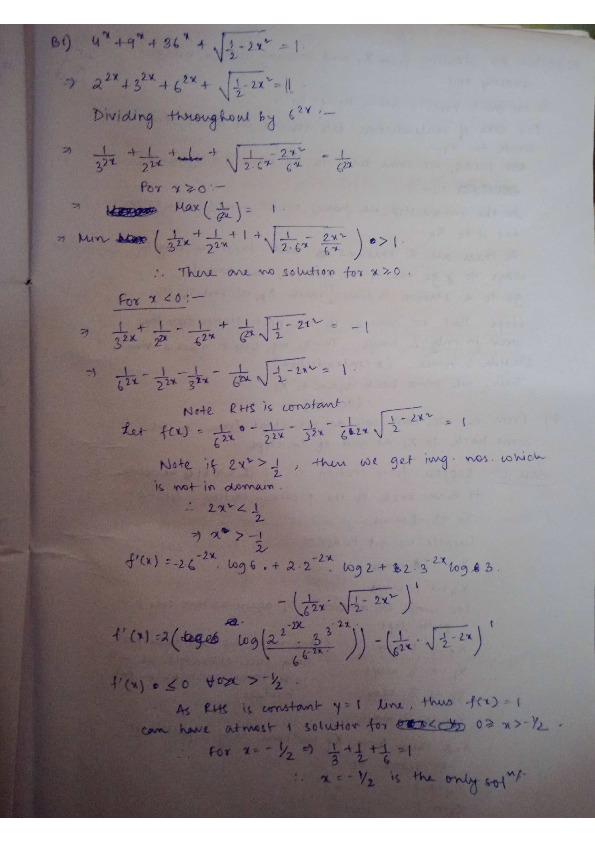 B1) 4^x + 9^x + 36^x + √(1/2 - 2x²) = 1.
⇒ 2^2x + 3^2x + 6^2x + √(1/2 - 2x²) = 1
Dividing throughout by 6^2x :-
⇒ 1/3^2x + 1/2^2x + 1 + √(1/2·6^x - 2x²/6^x) = 1/6^2x
For x ≥ 0 :-
⇒ Max(1/6^2x) = 1.
⇒ Min (1/3^2x + 1/2^2x + 1 + √(1/2·6^x - 2x²/6^x)) > 1.
∴ There are no solution for x ≥ 0.
For x < 0 :-
⇒ 1/3^2x + 1/2^2x - 1/6^2x + 1/6^2x √(1/2 - 2x²) = -1
⇒ 1/6^2x - 1/2^2x - 1/3^2x - 1/6^2x √(1/2 - 2x²) = 1.
Note RHS is constant
Let f(x) = 1/6^2x - 1/2^2x - 1/3^2x - 1/6^2x √(1/2 - 2x²) = 1.
Note if 2x² > 1/2, then we get img. nos. which
is not in domain.
∴ 2x² < 1/2
⇒ x > -1/2
f'(x) = -26^-2x . log 6 . + 2·2^-2x . log 2 + 2·3^-2x log 3.
- (1/6^2x · √(1/2 - 2x²))'
f'(x) = 2(log(2^2^-2x . 3^3^-2x / 6^6^-2x)) - (1/6^2x . √(1/2 - 2x))'
f'(x) ≤ 0 ∀ x > -1/2.
As RHS is constant y = 1 line, thus f(x) = 1
can have atmost 1 solution for 0 ≥ x > -1/2.
For x = -1/2 ⇒ 1/3 + 1/2 + 1/6 = 1
∴ x = -1/2 is the only solⁿ.